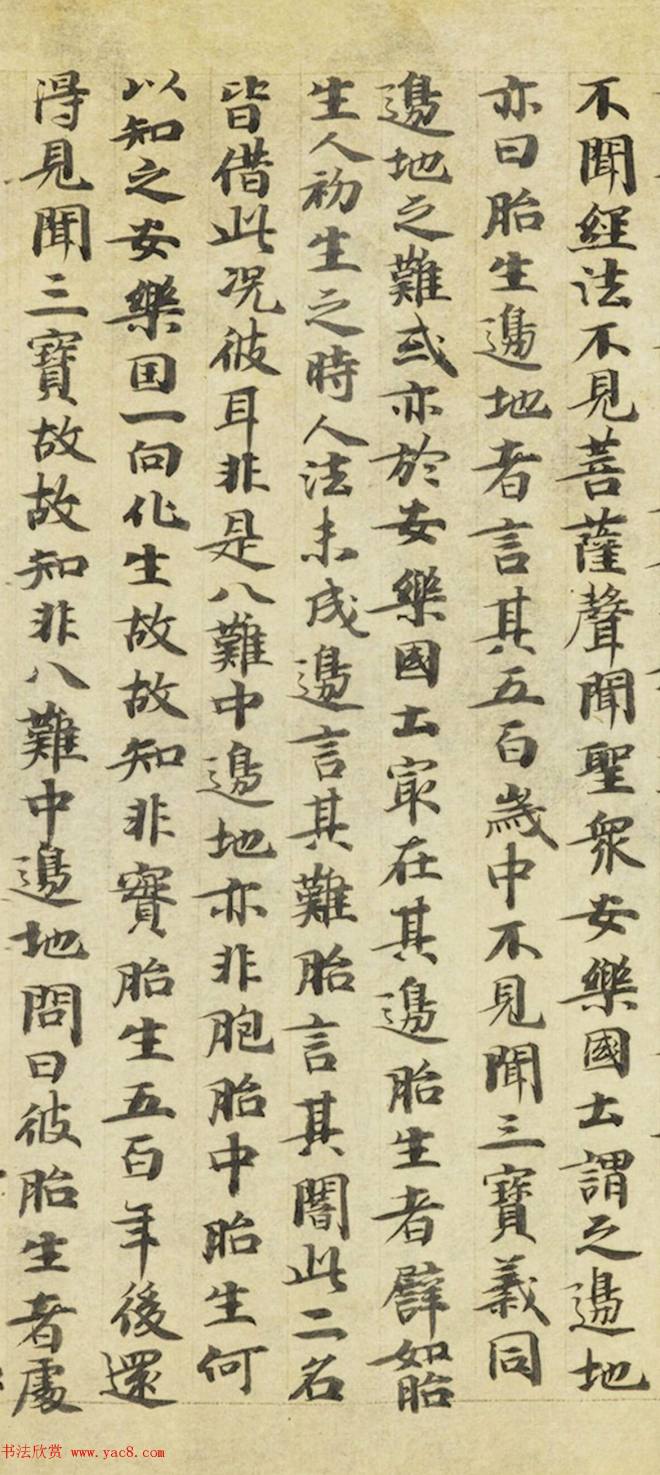 不聞經法不見菩薩聲聞聖衆安樂國土謂之邊地
亦曰胎生邊地者言其五百歲中不見聞三寶義同
邊地之難或亦於安樂國土㝡在其邊胎生者譬如胎
生人初生之時人法未成邊言其難胎言其闇此二名
皆借此况彼耳非是八難中邊地亦非胞胎中胎生何
以知之安樂国一向化生故故知非實胎生五百年後還
得見聞三寶故故知非八難中邊地問曰彼胎生者處
书法欣赏 www.yac8.com